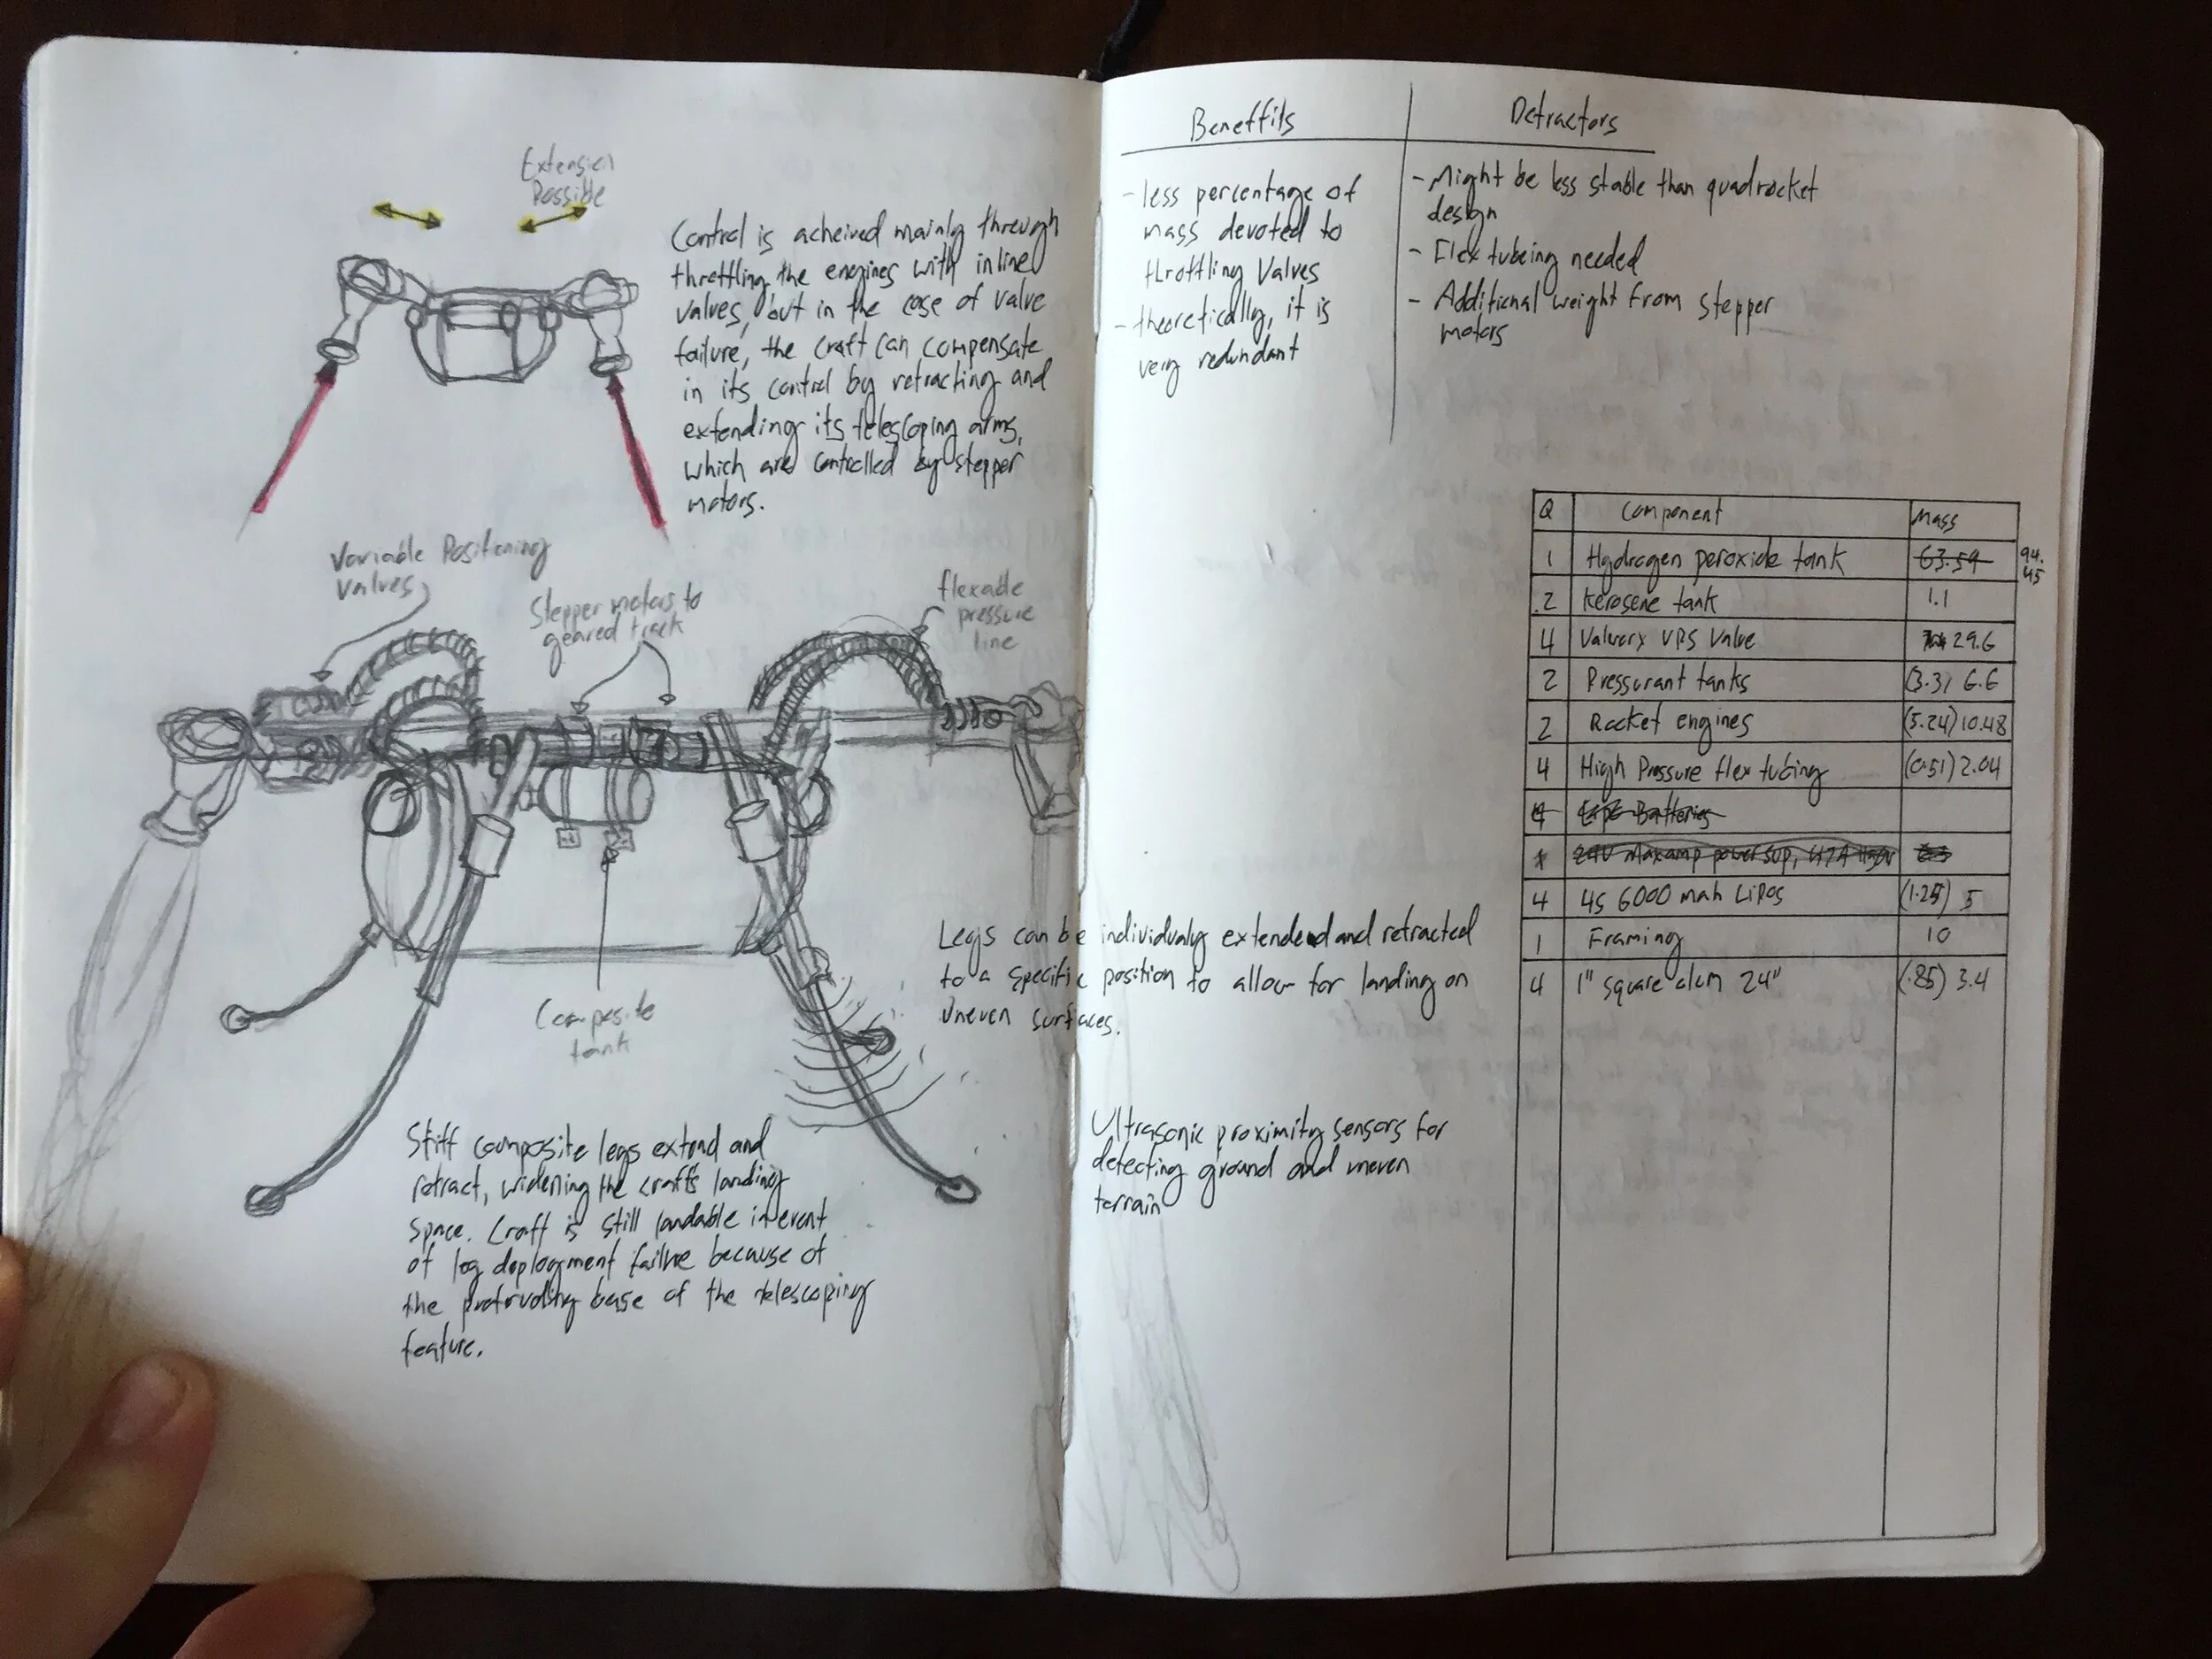 Extension
Possible
Control is acheived mainly through
throttling the engines with inline
valves, but in the case of valve
failure, the craft can compensate
in its control by retracting and
extending its telescoping arms,
which are controlled by stepper
motors.
Variable Positioning
valves
Stepper motors to
geared track
flexable
pressure
line
Composite
tank
Legs can be individualy extended and retracted
to a specific position to allow for landing on
uneven surfaces.
Stiff composite legs extend and
retract, widening the crafts landing
space. Craft is still landable in event
of leg deployment failure because of
the protruding base of the telescoping
feature.
Ultrasonic proximity sensors for
detecting ground and uneven
terrain
Beneffits
- less percentage of
mass devoted to
throttling Valves
- theoretically, it is
very redundant
Detractors
- Might be less stable than quadrocket
design
- Flex tubeing needed
- Additional weight from stepper
motors
Q Component Mass
1 Hydrogen peroxide tank 63.59 94.45
2 Kerosene tank 1.1
4 VPS Valve 29.6
2 Pressurant tanks (3.3) 6.6
2 Rocket engines (5.24) 10.48
4 High Pressure flex tubing (0.51) 2.04
Batteries
4 4S 6000 mah LiPos (1.25) 5
1 Framing 10
4 1" square alum 24" (.85) 3.4